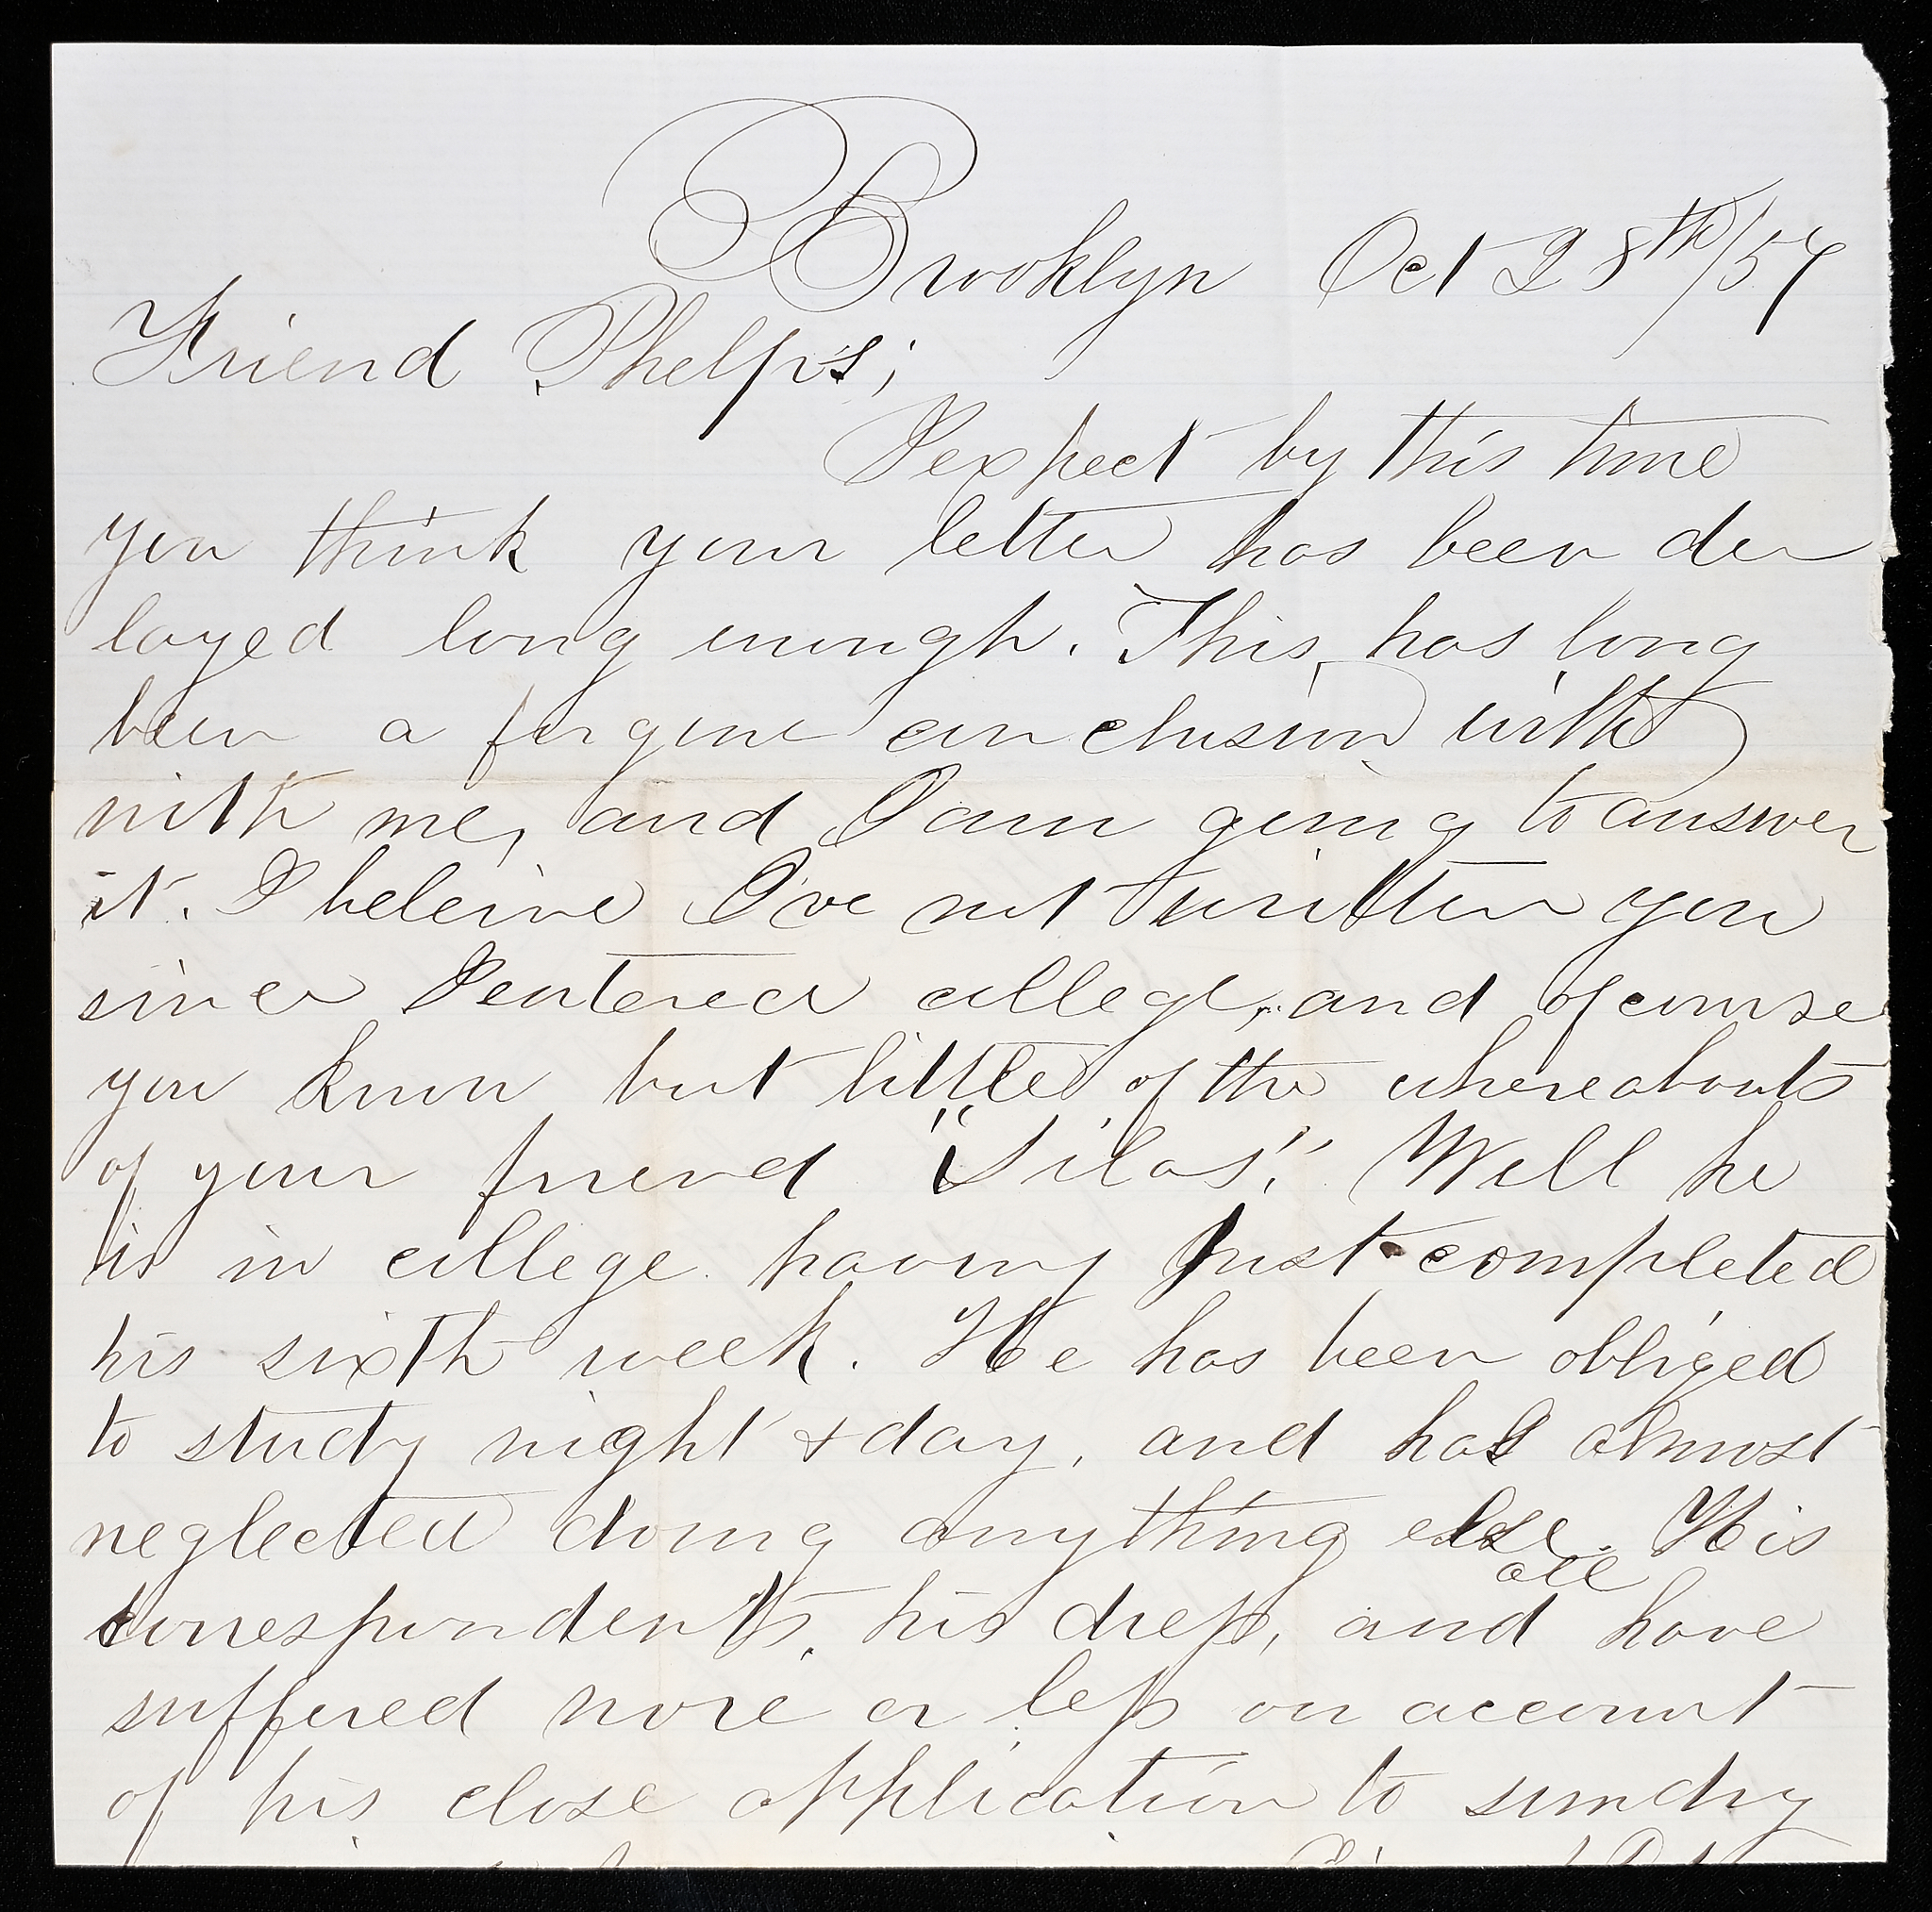 Brooklyn Oct 28th/57
Friend Phelps;
I expect by this time
you think your letter has been de
layed long enough. This has long
been a forgone conclusion with
with me, and I am going to answer
it. I beleive I've not written you
since I entered college, and of course
you know but little of the whereabouts
of your friend "Silas". Well he
is in college having just completed
his sixth week. He has been obliged
to study night & day, and has almost
neglected doing anything else. His
all
correspondents, his dress, and have
suffered more or less on account
of his close application to sundry